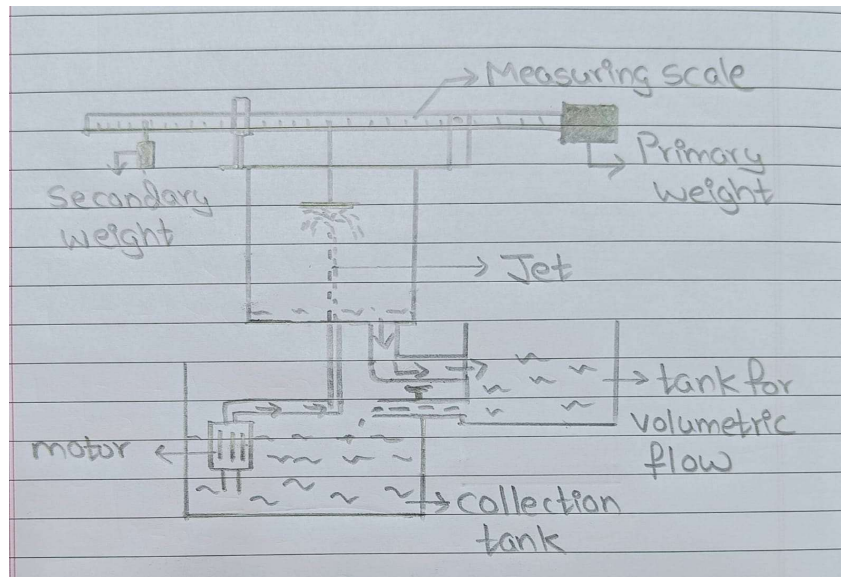 Measuring scale
Primary
weight
Secondary
weight
Jet
tank for
volumetric
flow
motor
collection
tank